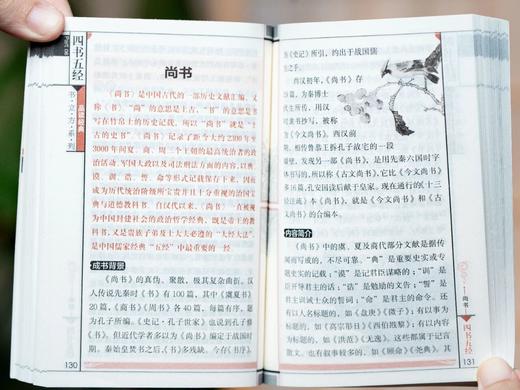 四书五经
品读经典
书·立·方·系·列
尚书
《尚书》是中国古代的一部历史文献汇编,又
称《书》“尚”的意思是上古,“书”的意思是书
写在竹帛上的历史记载。所以“尚书”就是“上
古的史书”。《尚书》记录了距今大约2300年至
3000年间夏、商、周三个王朝的最高统治者的政
治活动、军国大政以及司法刑法方面的内容,以典、
谟、训、诰、誓、命等形式记载保存下来。因而
成为历代统治阶级所宝贵并且十分重视的治国宝
典与道德教科书。自汉代以来,《尚书》一直被视
为中国封建社会的政治哲学经典,既是帝王的教
科书,又是贵族子弟及士大夫必遵的“大经大法”,
是中国儒家经典“五经”中最重要的一经。
成书背景
《尚书》的真伪、聚散,极其复杂曲折。汉
人传说先秦时《书》有100篇,其中《虞夏书》
20篇,《商书》《周书》各40篇,每篇有序,题
为孔子所编。《史记·孔子世家》也说到孔子修
《书》。但近代学者多以为《尚书》编定于战国时
期。秦始皇焚书之后,《书》多残缺。今存《书序》,
130
为《史记》所引,约出于战国儒
生之手。
西汉初年,《尚书》存
为秦博士
生所传,用汉
隶书抄写,被称
今文尚书》。西汉前
相传鲁恭王拆孔子故宅的一段
墙壁,发现另一部《尚书》,是用先秦六国时字体
书写的,所以称《古文尚书》,它比《今文尚书》
多16篇,孔安国读后献于皇家。现在通行的《十三
经注疏》本《尚书》,就是《今文尚书》和《古
文尚书》的合编本。
内容简介
《尚书》中的虞、夏及商代部分文献是据传
闻而写成的,不尽可靠。“典”是重要史实或专
题史实的记载;“谟”是记君臣谋略的;“训”是
臣开导君主的话;“诰”是勉励的文告;“誓”是
君主训诫士众的誓词;“命”是君主的命令。还
有以人名标题的,如《盘庚》《微子》;有以事为
标题的,如《高宗肜日》《西伯戡黎》;有以内容
为标题的,如《洪范》《无逸》。这些都属于记言
散文。也有叙事较多的,如《顾命》《尧典》。其
尚书
四书五经
131